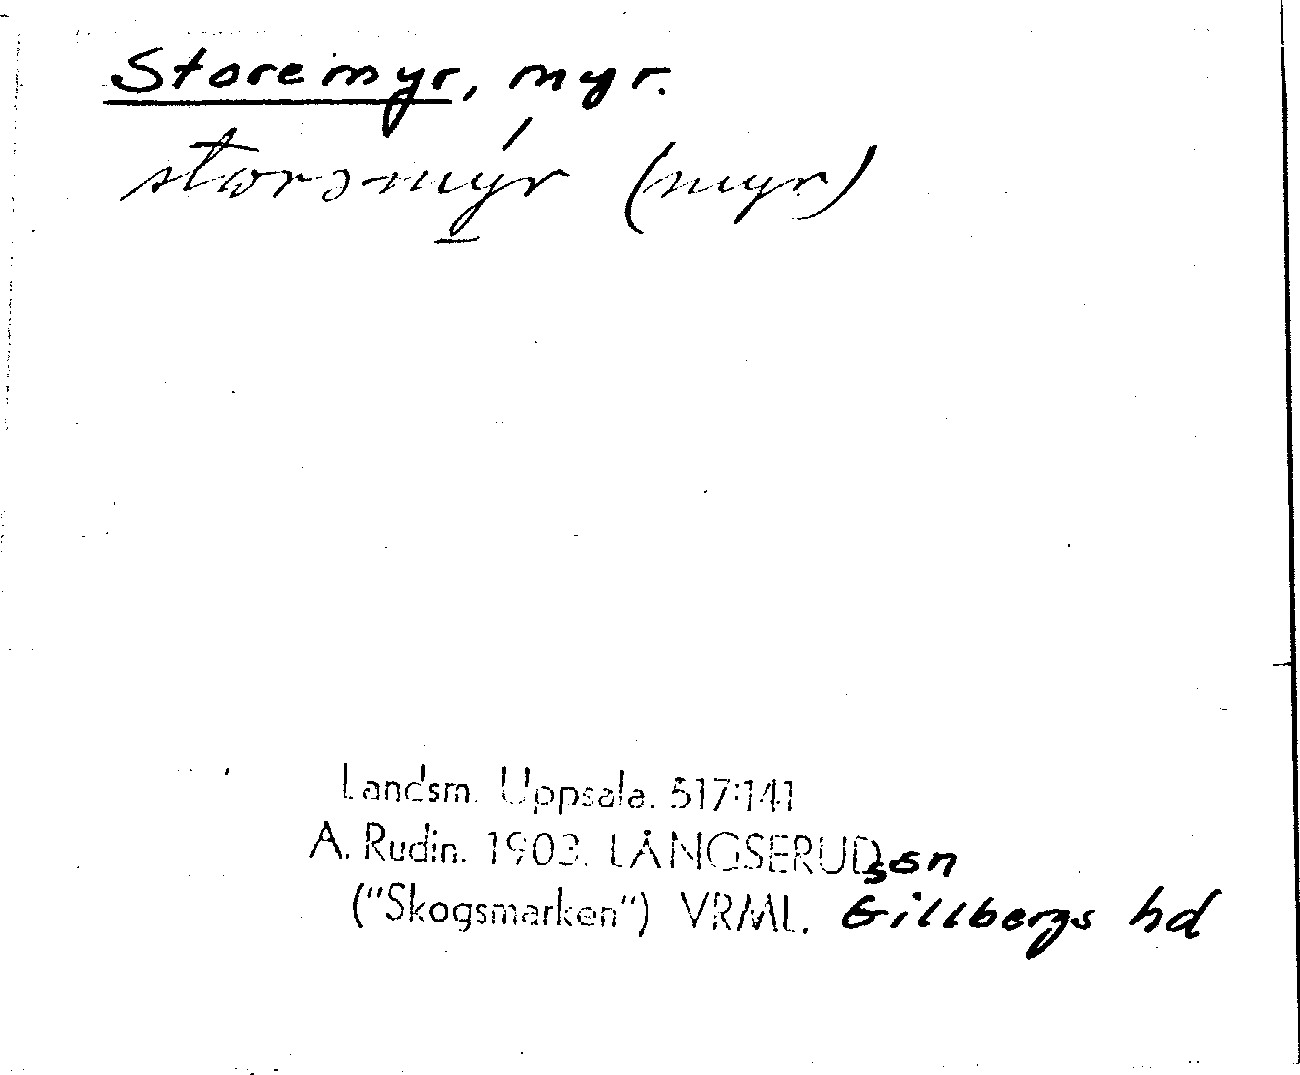 Storemyr, myr.
storəmyr (myr)
Landsm. Uppsala. 517:141
A. Rudin. 1903. LÅNGSERUD ssn
("Skogsmarken") VRML. Gillbergs hd